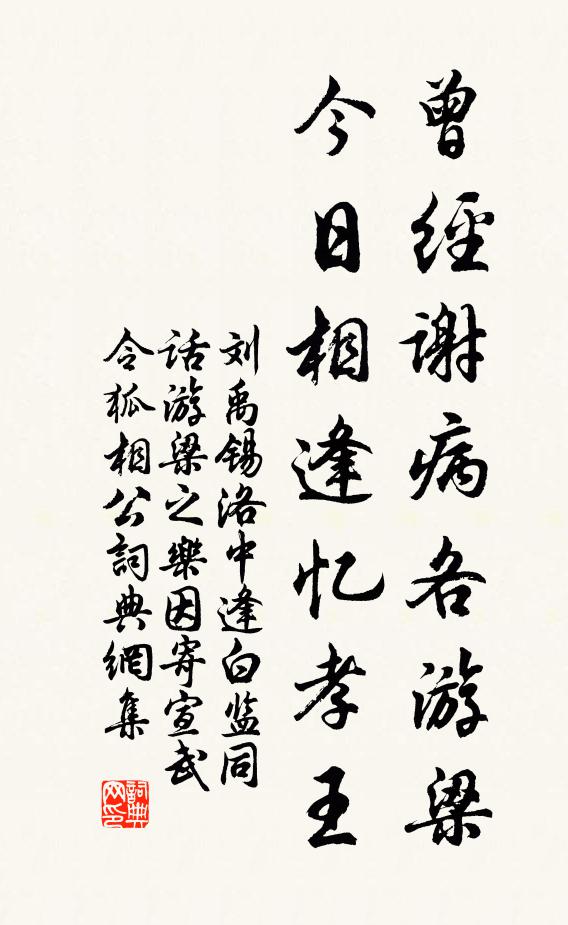 曾經謝病各游梁
今日相逢忆孝王
刘禹锡洛中逢白监同
话游梁之樂因寄宣武
令狐相公詞典網集
詞典网印